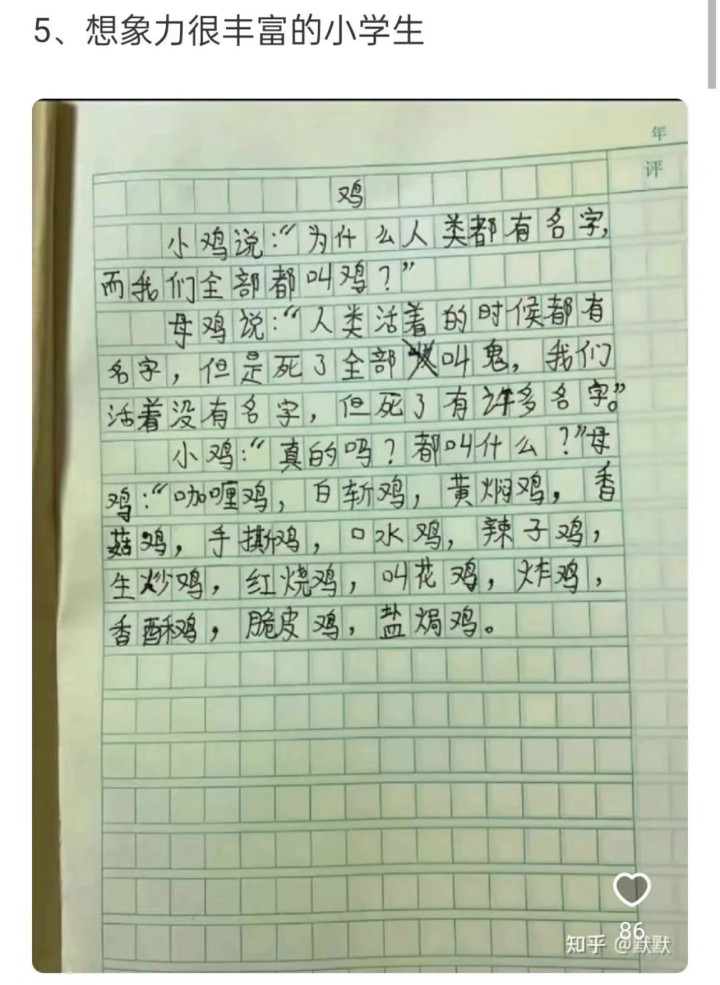 5、想象力很丰富的小学生
年
评
鸡
小鸡说：“为什么人类都有名字，
而我们全部都叫鸡？”
母鸡说：“人类活着的时候都有
名字，但是死了全部叫鬼，我们
活着没有名字，但死了有许多名字。”
小鸡：“真的吗？都叫什么？”母
鸡：“咖喱鸡，白斩鸡，黄焖鸡，香
菇鸡，手撕鸡，口水鸡，辣子鸡，
生炒鸡，红烧鸡，叫花鸡，炸鸡，
香酥鸡，脆皮鸡，盐焗鸡。
86
知乎 @默默